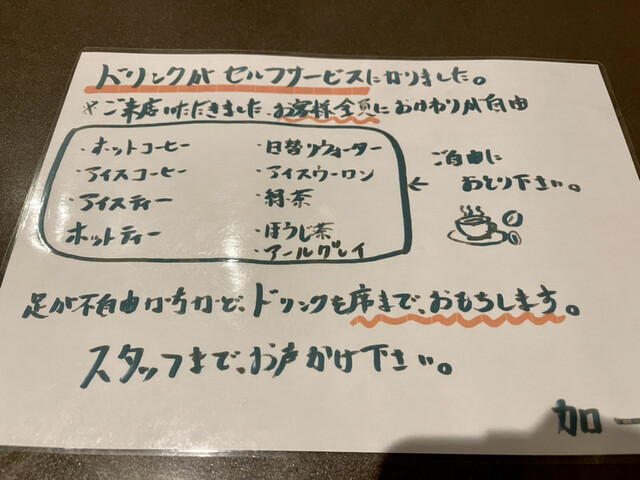 ドリンクが セルフサービスになりました。
※ご来店いただきました、お客様全員におかわりが自由
・ホットコーヒー
・アイスコーヒー
・アイスティー
ホットティー
・日替りウォーター
・アイスウーロン
・緑茶
・ほうじ茶
・アールグレイ
← ご自由に
おとり下さい。
足が不自由な方など、ドリンクも席まで、おもちします。
スタッフまで、お声かけ下さい。
加